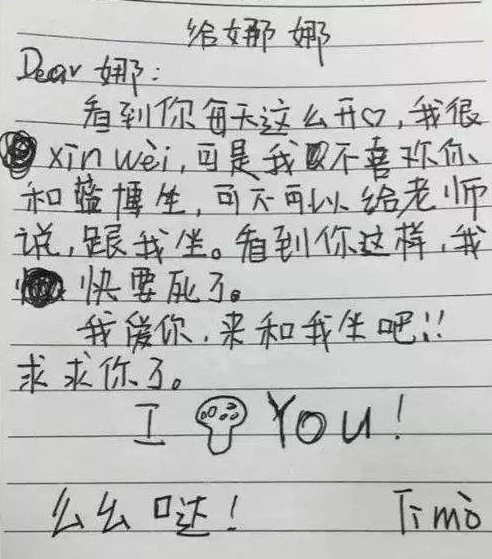 给娜娜
Dear 娜:
看到你每天这么开♡,我很
xīn wèi,可是我不喜欢你、
和蓝博坐,可不可以给老师
说,跟我坐。看到你这样,我
快要死了。
我爱你,来和我坐吧!!
求求你了。
I You!
么么哒! Timo